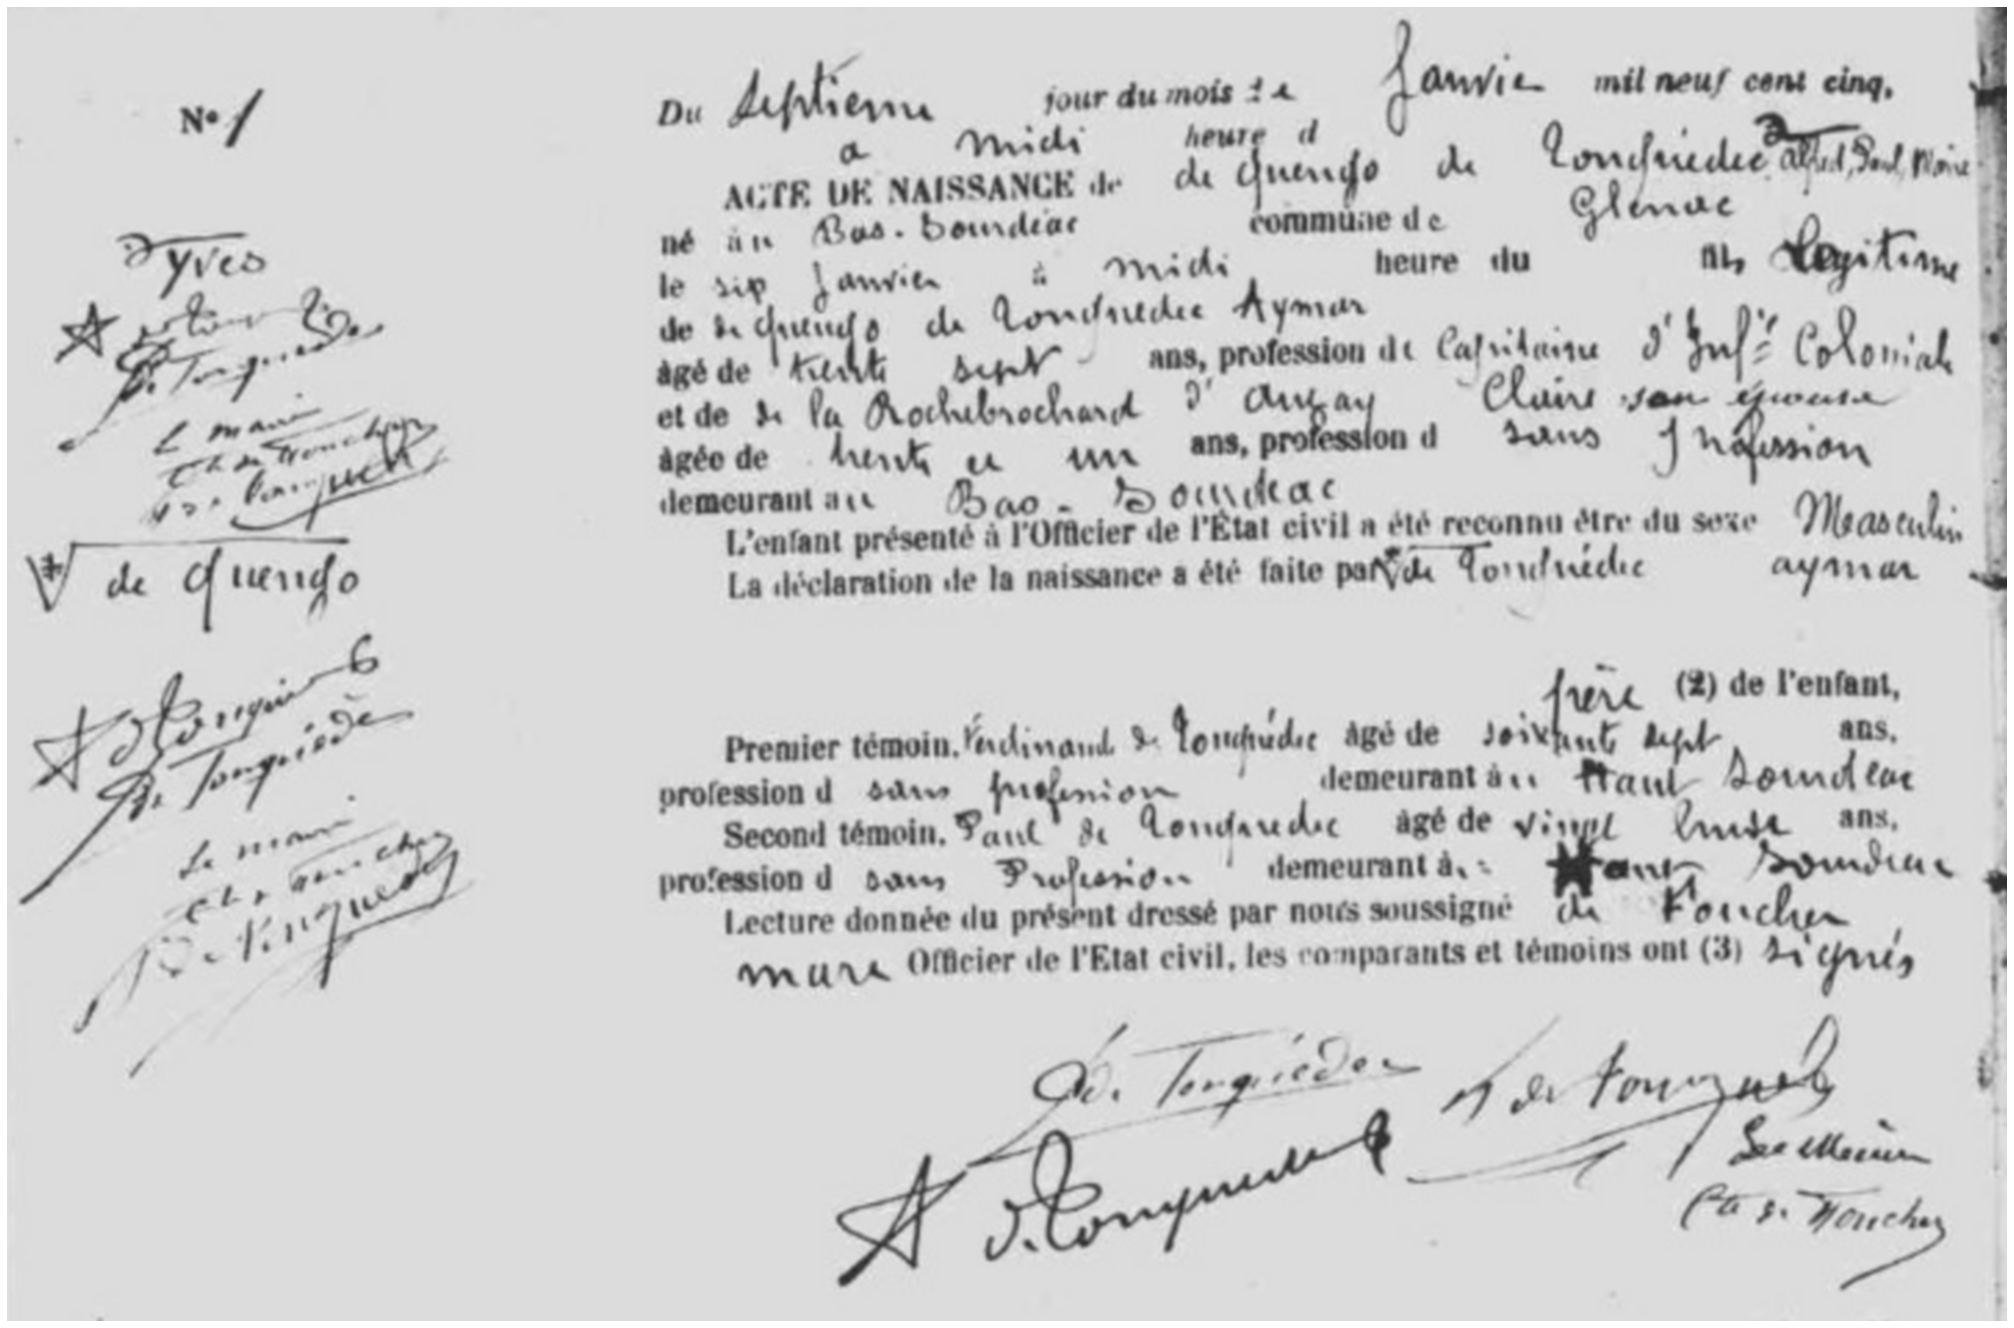 Nº 1
Du septieme jour du mois de Janvier mil neuf cent cinq,
a midi heure d
ACTE DE NAISSANCE de de Quengo de Tonquédec Alfred, Paul, Marie
né au Bas-Sourdéac commune de Glénac
le sip Janvier à midi heure du fils legitime
de de Quengo de Tonquedec Aymar
âgé de trente sept ans, profession de Capitaine d'Infie Coloniale
et de de la Rochebrochard d'Auzay Claire son épouse
âgée de trente et un ans, profession d sans Profession
demeurant au Bas-Sourdeac
L'enfant présenté à l'Officier de l'État civil a été reconnu être du sexe Masculin
La déclaration de la naissance a été faite par de Tonquédec aymar
père (2) de l'enfant,
Premier témoin, Ferdinand de Tonquédec âgé de soixante sept ans,
profession d sans profession demeurant au Haut Sourdeac
Second témoin, Paul de Tonquedec âgé de vingt ans,
profession d sans Profession demeurant à Haut Sourdeac
Lecture donnée du présent dressé par nous soussigné de Foucher
maire Officier de l'Etat civil, les comparants et témoins ont (3) signés
de Tonquédec
de Tonquedec
de Tonquedec
Le Maire
Cte de Foucher
Yves
de Tonquedec
Le maire
Cte de Foucher
de Tonquedec
de Quengo
de Tonquedec
de Tonquédec
Le maire
Cte de Foucher
de Tonquedec